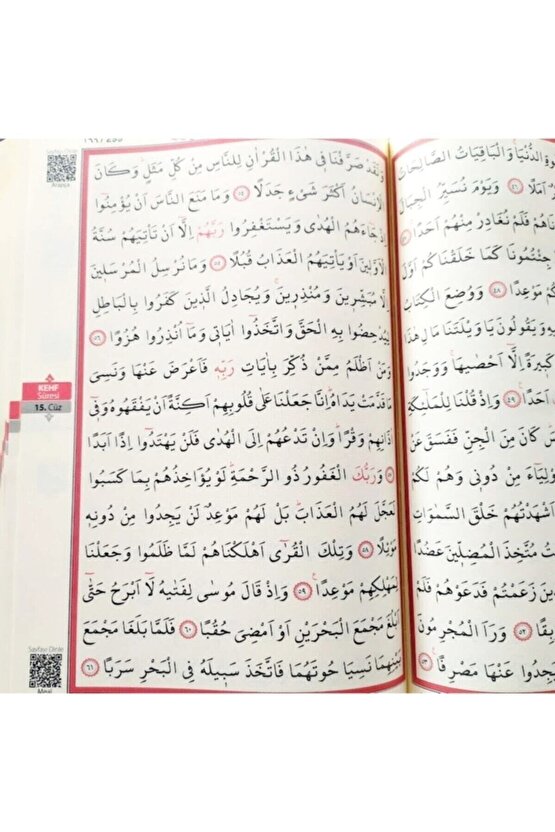 وةِ الدُّنْيَا وَالْبَاقِيَاتُ الصَّالِحَاتُ
اَمَلًا ٤٦ وَيَوْمَ نُسَيِّرُ الْجِبَالَ
نَاهُمْ فَلَمْ نُغَادِرْ مِنْهُمْ اَحَدًا ٤٧
جِئْتُمُونَا كَمَا خَلَقْنَاكُمْ اَوَّلَ
كُمْ مَوْعِدًا ٤٨ وَوُضِعَ الْكِتَابُ
وَيَقُولُونَ يَا وَيْلَتَنَا مَالِ هٰذَا
كَبِيرَةً اِلَّٓا اَحْصٰيهَا وَوَجَدُوا
اَحَدًا ٤٩ وَاِذْ قُلْنَا لِلْمَلٰٓئِكَةِ
كَانَ مِنَ الْجِنِّ فَفَسَقَ عَنْ
وْلِيَٓاءَ مِنْ دُونِي وَهُمْ لَكُمْ
اَشْهَدْتُهُمْ خَلْقَ السَّمٰوَاتِ
تُ مُتَّخِذَ الْمُضِلِّينَ عَضُدًا
ينَ زَعَمْتُمْ فَدَعَوْهُمْ فَلَمْ
بِقًا ٥٢ وَرَاَ الْمُجْرِمُونَ
يَجِدُوا عَنْهَا مَصْرِفًا ٥٣
وَلَقَدْ صَرَّفْنَا فِي هٰذَا الْقُرْاٰنِ لِلنَّاسِ مِنْ كُلِّ مَثَلٍ وَكَانَ
الْاِنْسَانُ اَكْثَرَ شَيْءٍ جَدَلًا ٥٤ وَمَا مَنَعَ النَّاسَ اَنْ يُؤْمِنُٓوا
اِذْ جَٓاءَهُمُ الْهُدٰى وَيَسْتَغْفِرُوا رَبَّهُمْ اِلَّٓا اَنْ تَأْتِيَهُمْ سُنَّةُ
الْاَوَّلِينَ اَوْ يَأْتِيَهُمُ الْعَذَابُ قُبُلًا ٥٥ وَمَا نُرْسِلُ الْمُرْسَلِينَ
اِلَّا مُبَشِّرِينَ وَمُنْذِرِينَ وَيُجَادِلُ الَّذِينَ كَفَرُوا بِالْبَاطِلِ
لِيُدْحِضُوا بِهِ الْحَقَّ وَاتَّخَذُٓوا اٰيَاتِي وَمَٓا اُنْذِرُوا هُزُوًا ٥٦
وَمَنْ اَظْلَمُ مِمَّنْ ذُكِّرَ بِاٰيَاتِ رَبِّهِ فَاَعْرَضَ عَنْهَا وَنَسِيَ
مَا قَدَّمَتْ يَدَاهُ اِنَّا جَعَلْنَا عَلٰى قُلُوبِهِمْ اَكِنَّةً اَنْ يَفْقَهُوهُ وَفِٓي
اٰذَانِهِمْ وَقْرًا وَاِنْ تَدْعُهُمْ اِلَى الْهُدٰى فَلَنْ يَهْتَدُٓوا اِذًا اَبَدًا
٥٧ وَرَبُّكَ الْغَفُورُ ذُو الرَّحْمَةِ لَوْ يُؤَاخِذُهُمْ بِمَا كَسَبُوا
لَعَجَّلَ لَهُمُ الْعَذَابَ بَلْ لَهُمْ مَوْعِدٌ لَنْ يَجِدُوا مِنْ دُونِهِ
مَوْئِلًا ٥٨ وَتِلْكَ الْقُرٰٓى اَهْلَكْنَاهُمْ لَمَّا ظَلَمُوا وَجَعَلْنَا
لِمَهْلِكِهِمْ مَوْعِدًا ٥٩ وَاِذْ قَالَ مُوسٰى لِفَتٰيهُ لَٓا اَبْرَحُ حَتّٰٓى
اَبْلُغَ مَجْمَعَ الْبَحْرَيْنِ اَوْ اَمْضِيَ حُقُبًا ٦٠ فَلَمَّا بَلَغَا مَجْمَعَ
بَيْنِهِمَا نَسِيَا حُوتَهُمَا فَاتَّخَذَ سَبِيلَهُ فِي الْبَحْرِ سَرَبًا ٦١
Sayfayı Dinle
Arapça
KEHF
Sûresi
15. Cüz
Sayfayı Dinle
Meal